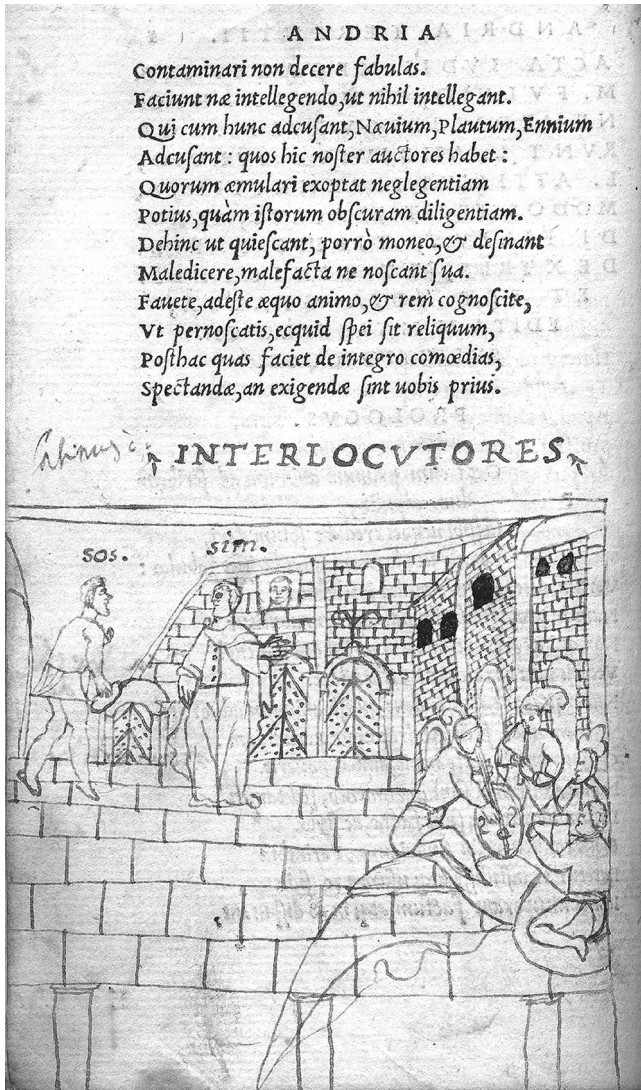 ANDRIA
Contaminari non decere fabulas.
Faciunt næ intellegendo,ut nihil intellegant.
Qui cum hunc adcusant,Næuium,Plautum,Ennium
Adcusant : quos hic noster auctores habet :
Quorum æmulari exoptat neglegentiam
Potius,quàm istorum obscuram diligentiam.
Dehinc ut quiescant, porrò moneo,& desinant
Maledicere,malefacta ne noscant sua.
Fauete,adeste æquo animo,& rem cognoscite,
Vt pernoscatis,ecquid spei sit reliquum,
Posthac quas faciet de integro comœdias,
Spectandæ,an exigendæ sint uobis prius.
INTERLOCVTORES
sos. sim.